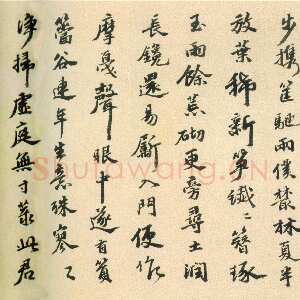 步攜筐馳兩僕藂林夏半
放葉稀新笋纖々簪琢
玉雨餘蒸砌更旁尋土潤
長鑱還易斸入門便作
摩戛聲眼中遂有篔
簹谷連年生意殊寥々
淨掃虛庭無寸菉此君
Shufawang.CN